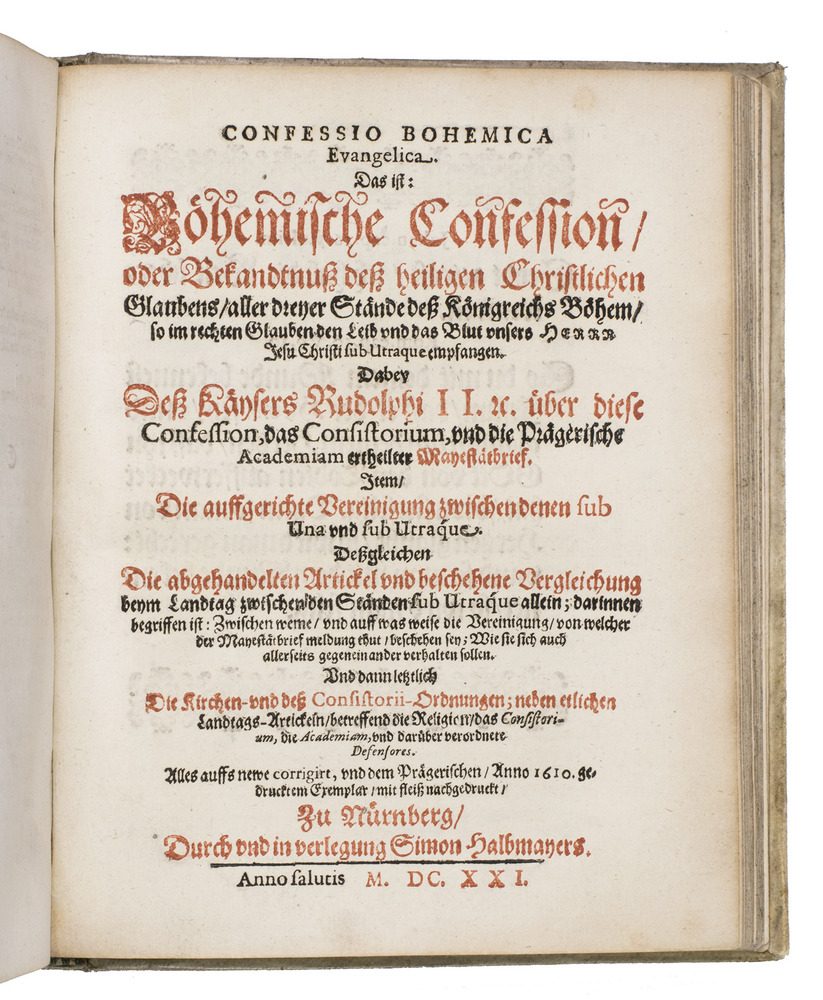 CONFESSIO BOHEMICA
Evangelica.
Das ist:
Böhemische Confession/
oder Bekandtnuß deß heiligen Christlichen
Glaubens/aller dreyer Stände deß Königreichs Böhem/
so im rechten Glauben den Leib vnd das Blut vnsers HERRN
Jesu Christi sub Utraque empfangen.
Dabey
Deß Käysers Rudolphi II. ꝛc. über diese
Confession, das Consistorium, vnd die Prägerische
Academiam ertheilter Mayestätbrief.
Item/
Die auffgerichte Vereinigung zwischen denen sub
Una vnd sub Utraque.
Deßgleichen
Die abgehandelten Artickel vnd beschehene Vergleichung
beym Landtag zwischen den Ständen sub Utraque allein; darinnen
begriffen ist: Zwischen weme/ vnd auff was weise die Vereinigung/ von welcher
der Mayestätbrief meldung thut/ beschehen sey; Wie sie sich auch
allerseits gegeneinander verhalten sollen.
Vnd dann letzlich
Die Kirchen-vnd deß Consistorii-Ordnungen; neben etlichen
Landtags-Artickeln/betreffend die Religion/das Consistori-
um, die Academiam, vnd darüber verordnete
Defensores.
Alles auffs newe corrigirt, vnd dem Prägerischen/ Anno 1610. ge-
drucktem Exemplar/ mit fleiß nachgedruckt/
Zu Nürnberg/
Durch vnd in verlegung Simon Halbmayers.
Anno salutis M. DC. XXI.